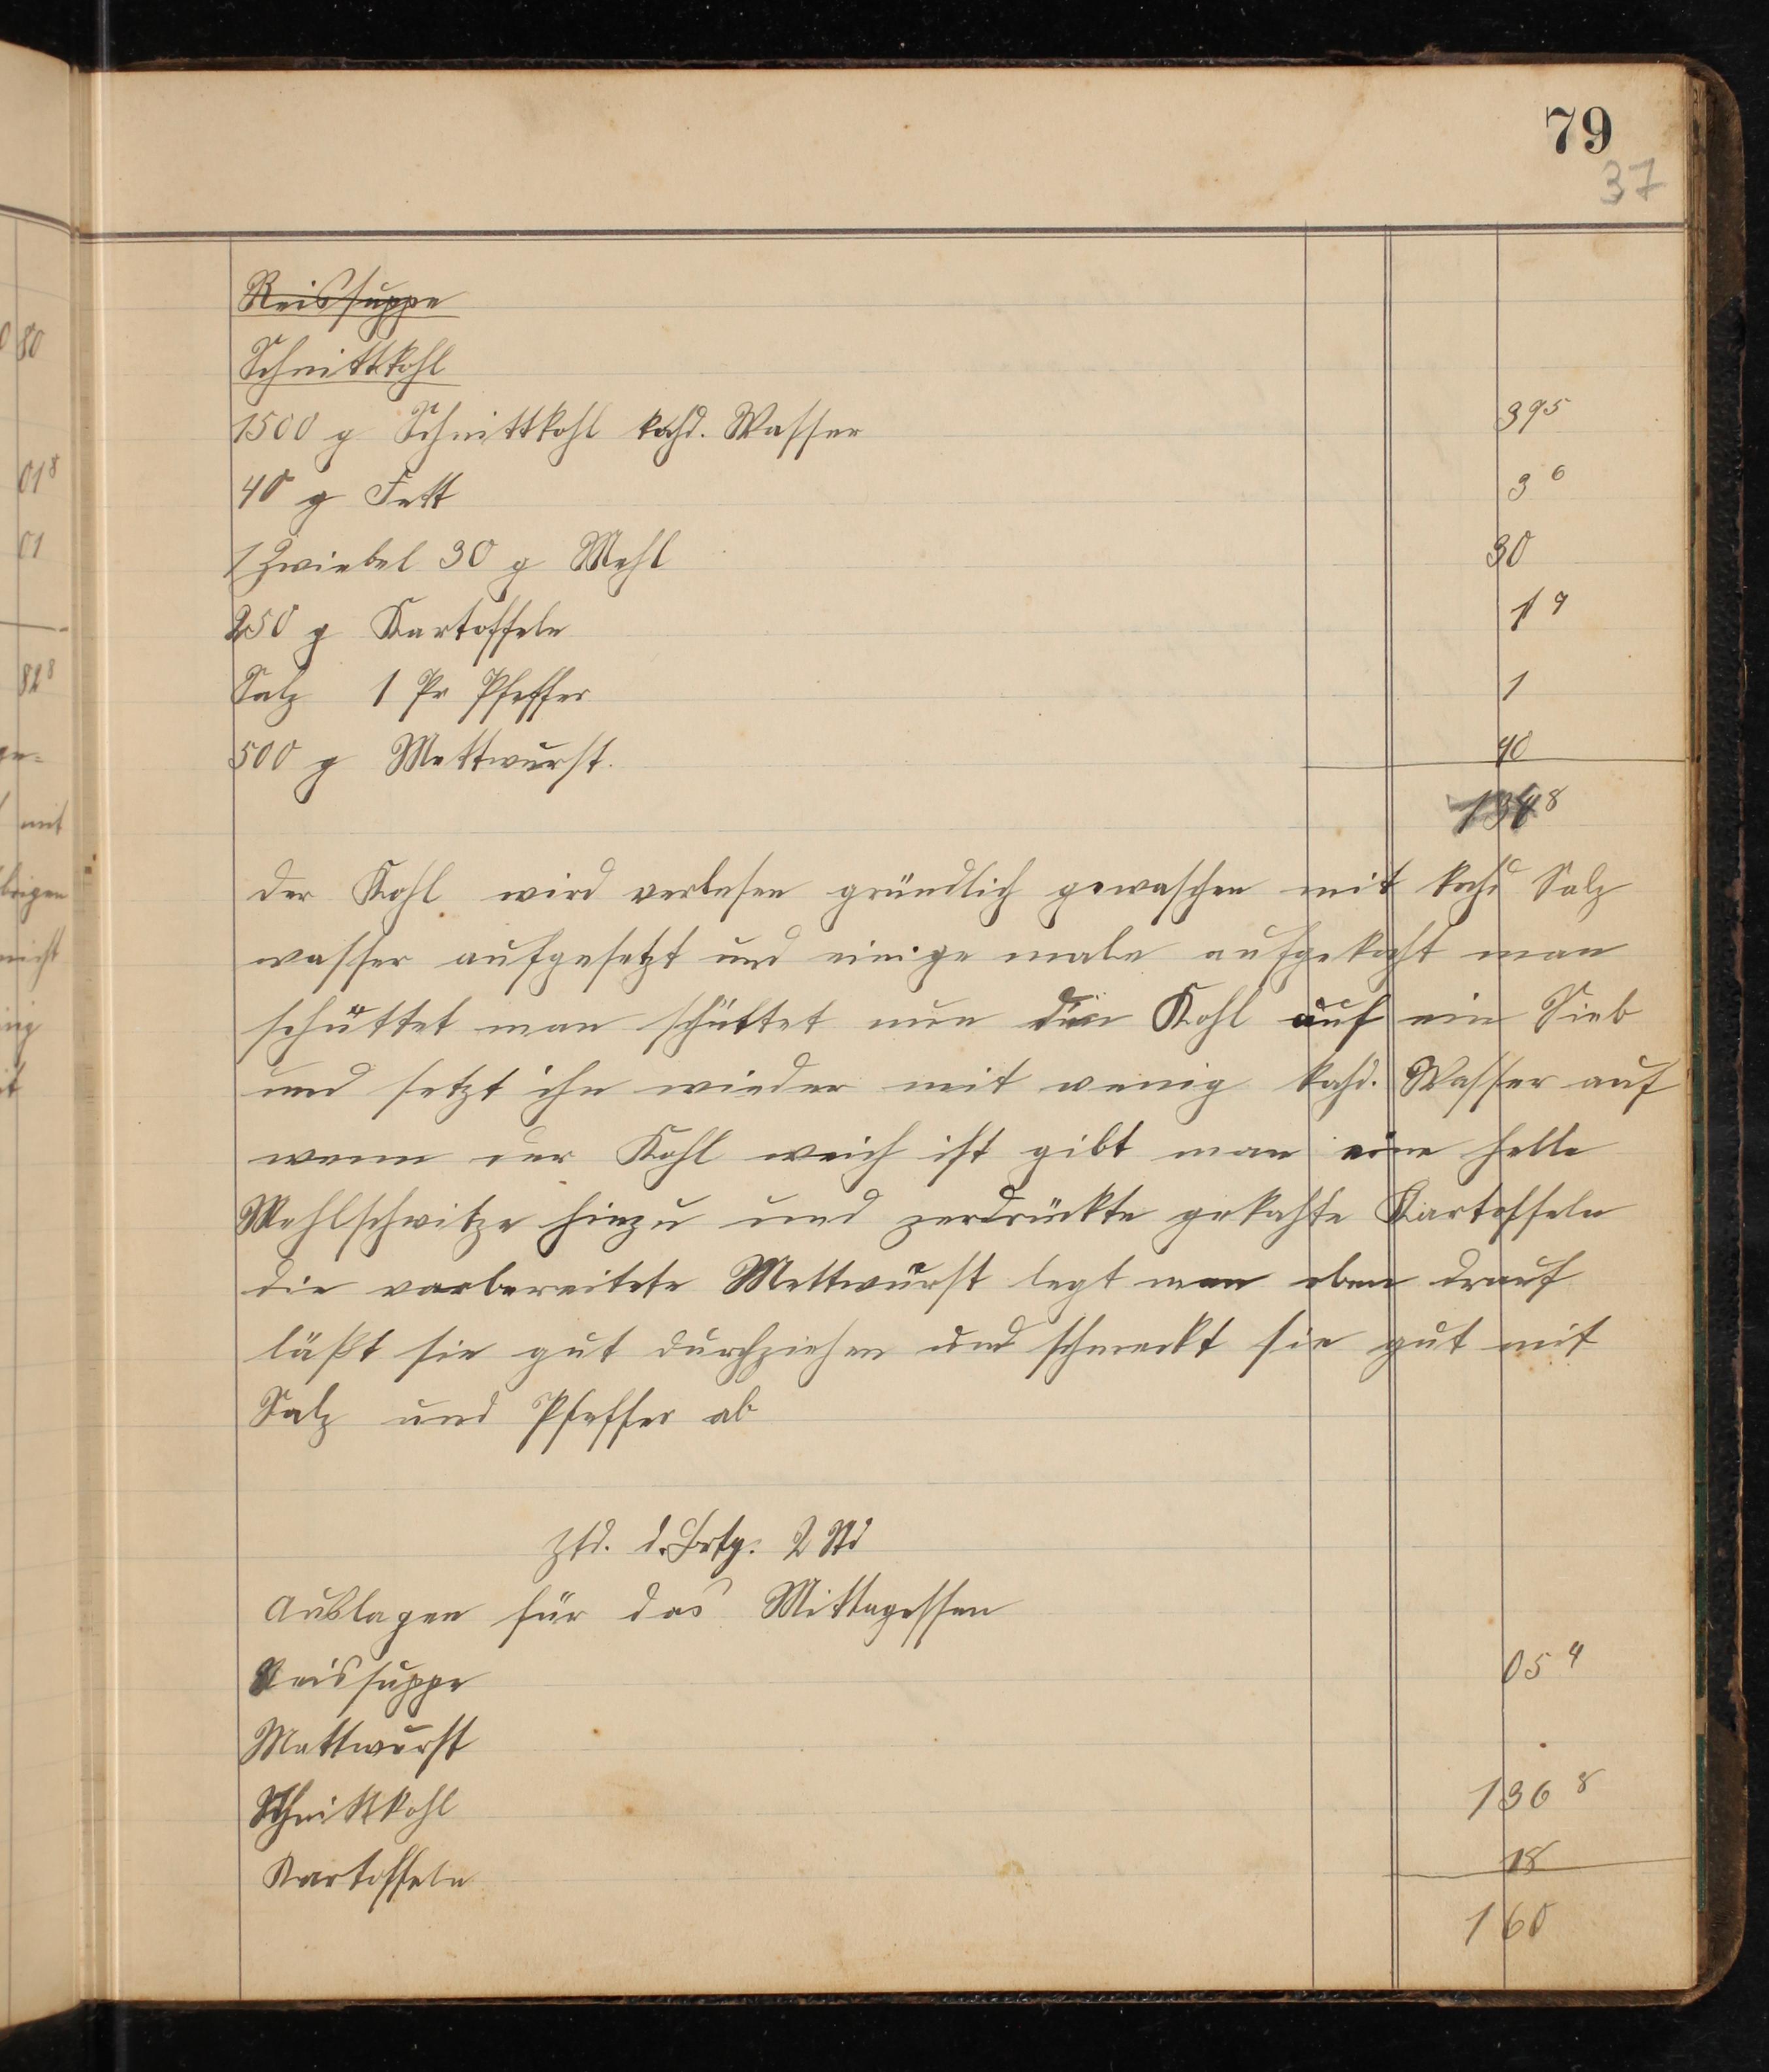 79
37
Reissuppe
Schnittkohl
1500 g Schnittkohl kochd. Wasser 39⁵
40 g Fett 3⁶
1 Zwiebel 30 g Mehl 30
250 g Kartoffeln 1⁴
Salz 1 Pr Pfeffer 1
500 g Mettwurst. 90
8
der Kohl wird verlesen gründlich gewaschen mit kochd Salz
wasser aufgesetzt und einige male aufgekocht man
schüttet man schüttet nun den Kohl auf ein Sieb
und setzt ihn wieder mit wenig kochd. Wasser auf
wenn der Kohl weich ist gibt man eine helle
Mehlschwitze hinzu und zerdrückte gekochte Kartoffeln
die vorbereitete Mettwurst legt man oben drauf
läßt sie gut durchziehen und schmeckt sie gut mit
Salz und Pfeffer ab
Ztd. d. Brtg. 2 Std
Auslagen für das Mittagessen
Reissuppe 05⁴
Mettwurst
Schnittkohl 136⁸
Kartoffeln 18
160
80
01⁸
01
82⁸
ge=
mit
brigen
nicht